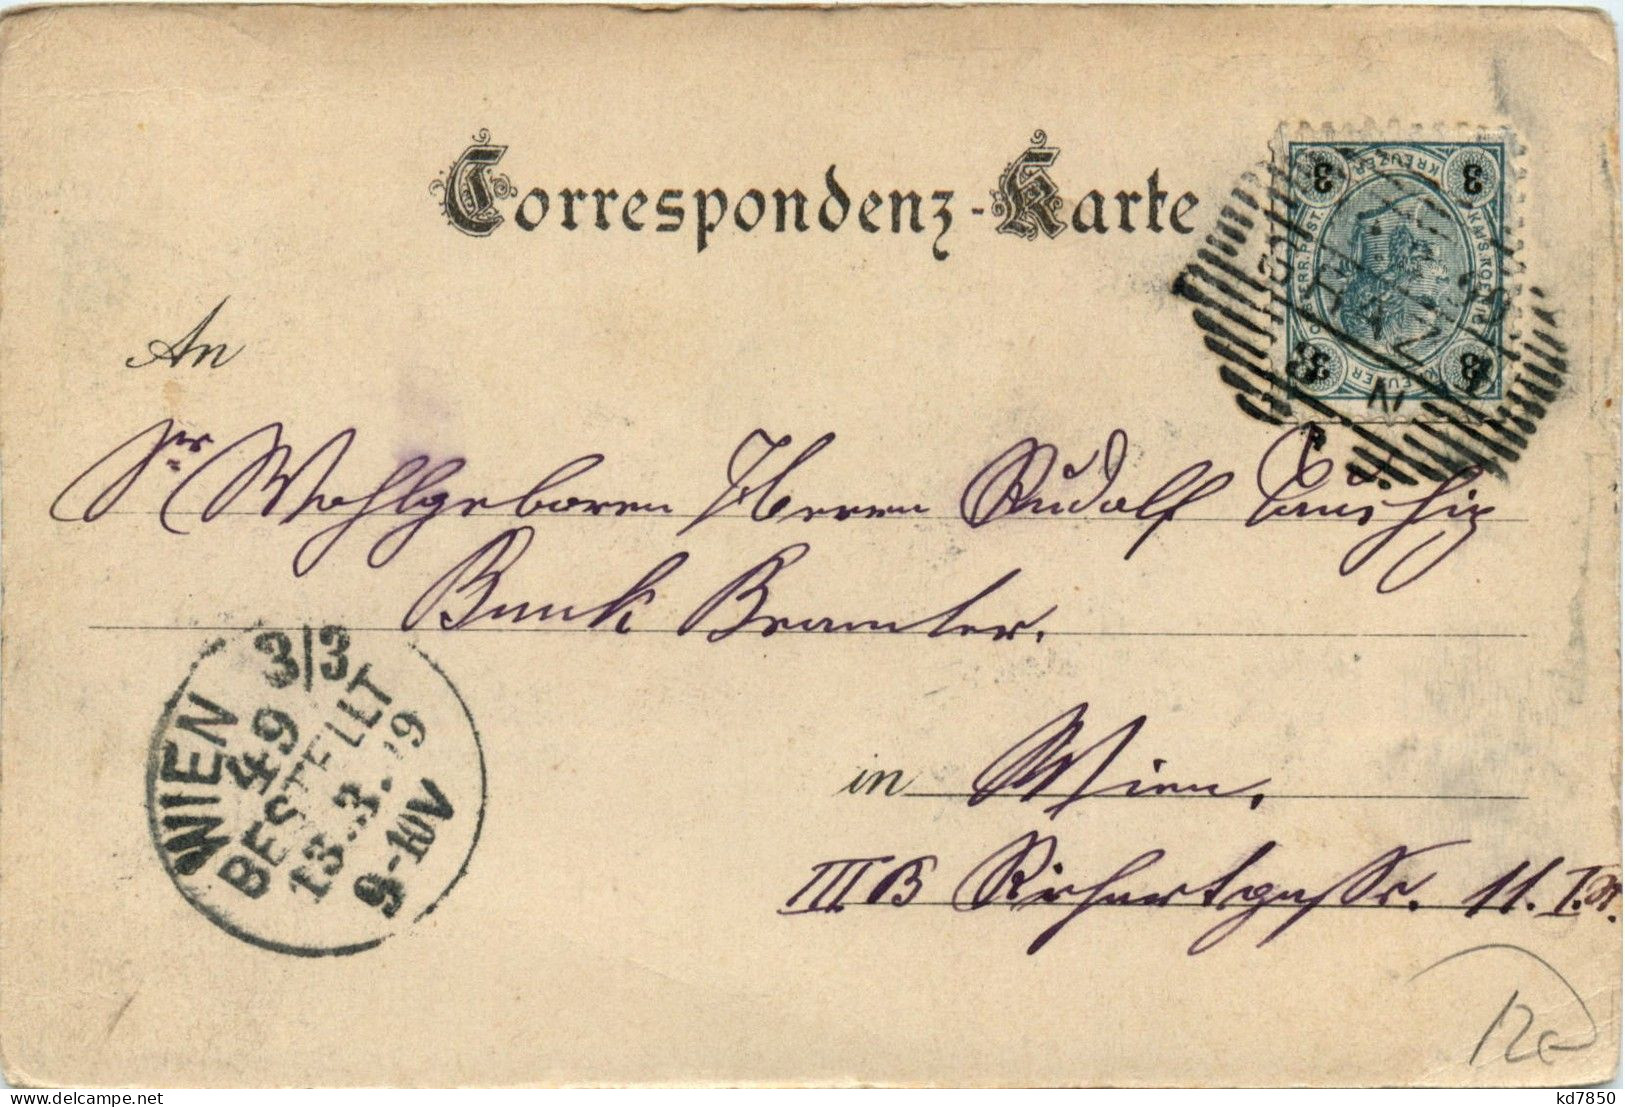 Correspondenz-Karte
3 KREUZER 3
OESTERR. POST. KAIS. KOENIG
3 KREUZER 3
WIEN
An
Sr Wohlgeboren Herrn Rudolf
Bank Beamter.
in Wien.
III B gasse. 11. I. St.
WIEN 3/3
49
BESTELLT
13.3.99
9-10V
12e
kd7850